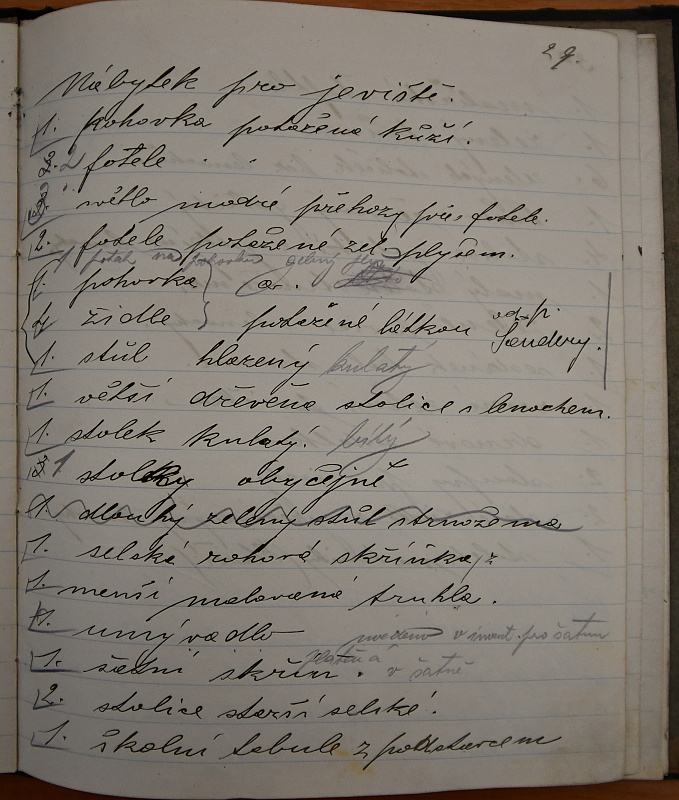 29.
Nábytek pro jeviště.
1. pohovka potažená kůží.
2 fotele " "
světlo modré přehozy přes fotele.
2. fotele potažené zel. plyšem.
1 potah na pohovku zelený plyš
1. pohovka
4 židle potažené látkou od p. Šandery.
1. stůl hlazený kulatý
1. větší dřevěna stolice s lenochem.
1. stolek kulatý. bílý
1 stolky obyčejné
1. dlouhý zelený stůl
1. selská rohová skříňka,
1. menší malovaná truhla.
1. umývadlo uvedeno v invent. pro šatnu
1. šatní skříň. v šatně
2. stolice starší selské.
1. školní tabule z podstavcem